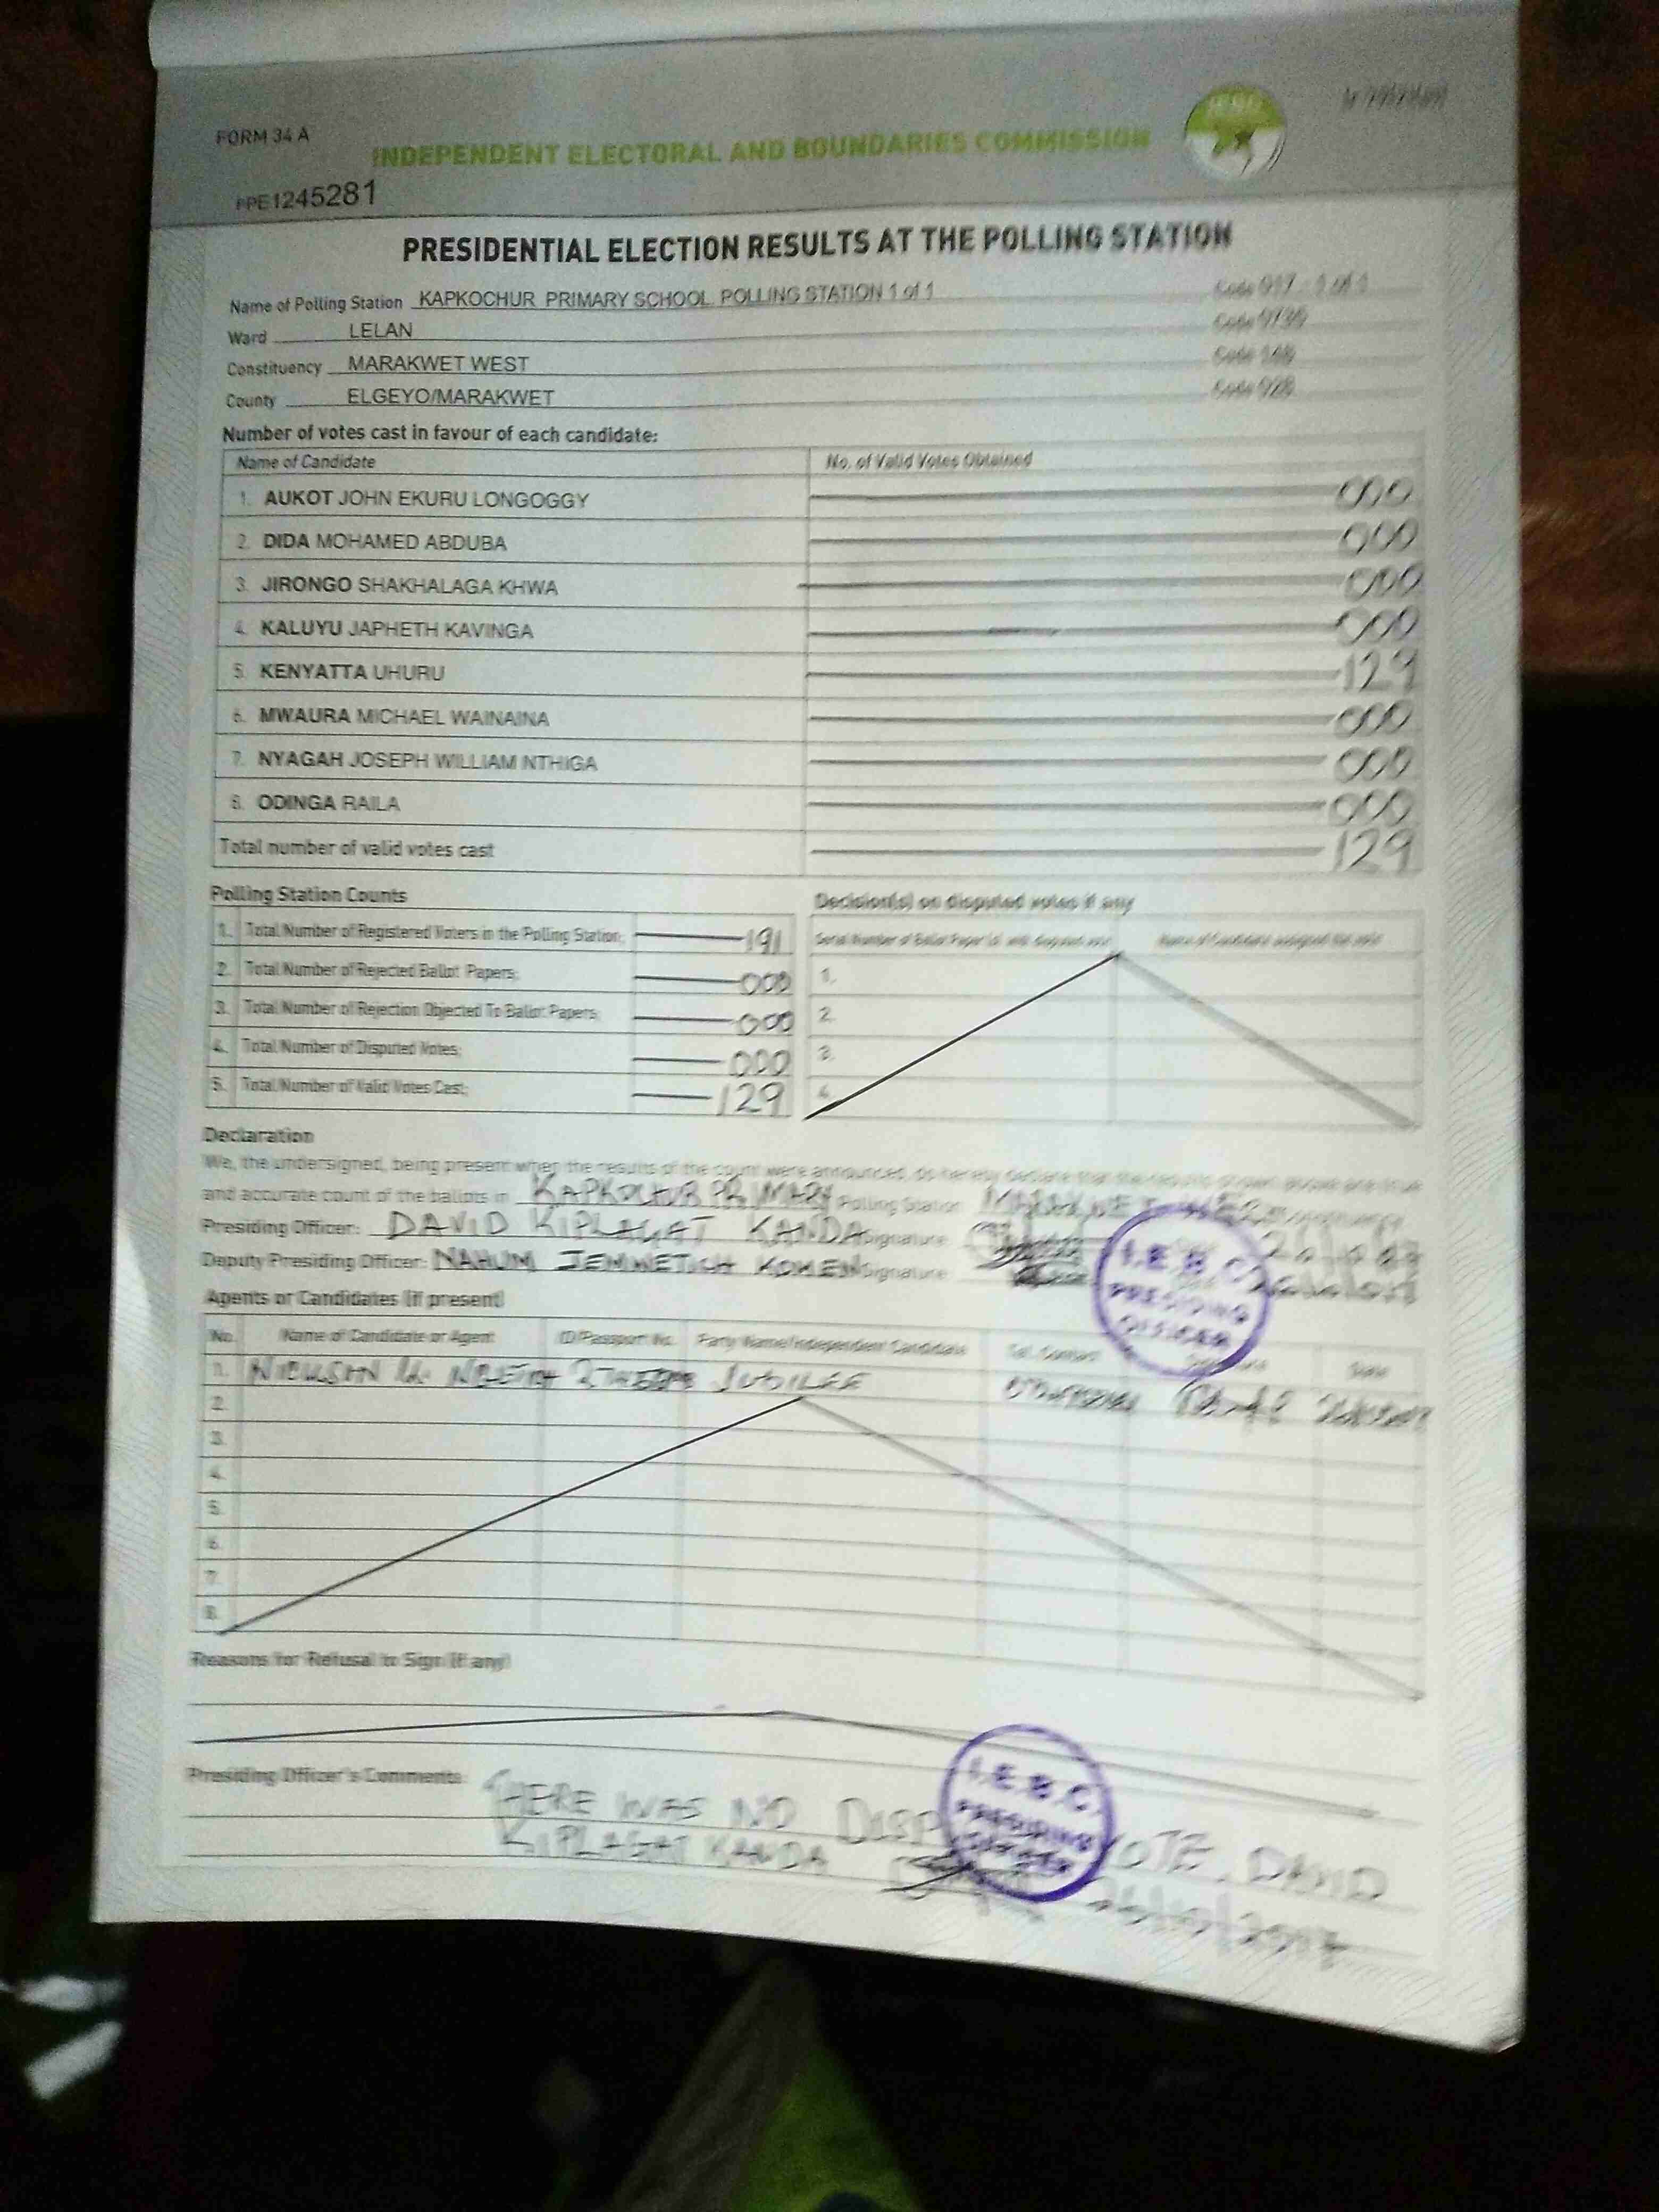 FORM 34 A
INDEPENDENT ELECTORAL AND BOUNDARIES COMMISSION
PPE1245281
PRESIDENTIAL ELECTION RESULTS AT THE POLLING STATION
Name of Polling Station KAPKOCHUR PRIMARY SCHOOL POLLING STATION 1 of 1 Code 017 - 1 of 1
Ward LELAN Code
Constituency MARAKWET WEST Code
County ELGEYO/MARAKWET Code 028
Number of votes cast in favour of each candidate:
Name of Candidate No. of Valid Votes Obtained
1. AUKOT JOHN EKURU LONGOGGY 000
2. DIDA MOHAMED ABDUBA 000
3. JIRONGO SHAKHALAGA KHWA 000
4. KALUYU JAPHETH KAVINGA 000
5. KENYATTA UHURU 129
6. MWAURA MICHAEL WAINAINA 000
7. NYAGAH JOSEPH WILLIAM NTHIGA 000
8. ODINGA RAILA 000
Total number of valid votes cast 129
Polling Station Counts
1. Total Number of Registered Voters in the Polling Station; 191
2. Total Number of Rejected Ballot Papers; 000
3. Total Number of Rejection Objected To Ballot Papers; 000
4. Total Number of Disputed Votes; 000
5. Total Number of Valid Votes Cast; 129
Decision(s) on disputed votes if any
Serial Number of Ballot Paper(s) with disputed vote Name of Candidate assigned the vote
1.
2.
3.
4.
Declaration
We, the undersigned, being present when the results of the count were announced, do hereby declare that the results shown above are true
and accurate count of the ballots in KAPKOCHUR PRIMARY Polling Station MARAKWET WEST
Presiding Officer: DAVID KIPLAGAT KANDA Signature
Deputy Presiding Officer: NAHUM JEMWETICH KOMEN Signature
I.E.B.C.
PRESIDING
OFFICER
Agents or Candidates (if present)
No. Name of Candidate or Agent ID/Passport No. Party Name/Independent Candidate Tel. Contact Signature Date
1. JUBILEE
2.
3.
4.
5.
6.
7.
8.
Reasons for Refusal to Sign (if any)
Presiding Officer's Comments:
THERE WAS NO VOTE. DAVID
KIPLAGAT KANDA 26/10/2017
I.E.B.C.
PRESIDING
OFFICER